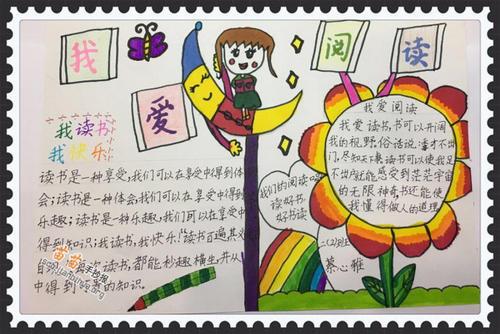 我
爱
阅
读
我读书
我快乐
读书是一种享受,我们可以在享受中得到体
会;读书是一种体会,我们可以在享受中得到
乐趣;读书是一种乐趣,我们可以在享受中
得到知识;我读书,我快乐!读书百遍,其义
自见
读书,都能妙趣横生,并从
中得到
的知识。
我们的阅读
读好书
好书读
我爱阅读
我爱读书,书可以开阔
我的视野,俗话说:秀才不出
门,尽知天下事,读书可以使我足
不出户就能感受到茫茫宇宙
的无限神奇书还能使
我懂得做人的道理
二(2)班
蔡心雅
苗苗手抄报